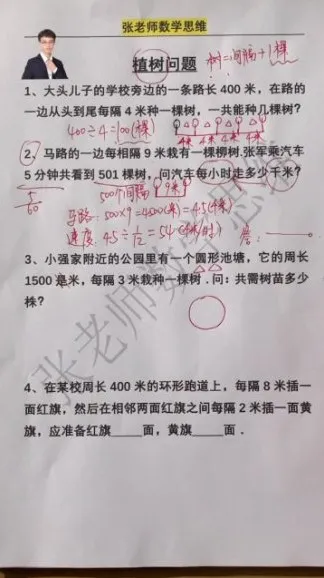 张老师数学思维
植树问题
树=间隔+1棵
1、大头儿子的学校旁边的一条路长 400 米，在路的
一边从头到尾每隔 4 米种一棵树，一共能种几棵树？
400÷4=100(棵)
4米 4米 4米 4米
2、马路的一边每相隔 9 米栽有一棵柳树.张军乘汽车
5 分钟共看到 501 棵树，问汽车每小时走多少千米？
5/60
500个间隔 9米
马路: 500×9=4500(米)=4.5(千米)
速度: 4.5÷1/12=54(千米/时)
答:
3、小强家附近的公园里有一个圆形池塘，它的周长
1500 是米，每隔 3 米栽种一棵树．问：共需树苗多少
株？
4、在某校周长 400 米的环形跑道上，每隔 8 米插一
面红旗，然后在相邻两面红旗之间每隔 2 米插一面黄
旗，应准备红旗____面，黄旗____面．
张老师数学思维